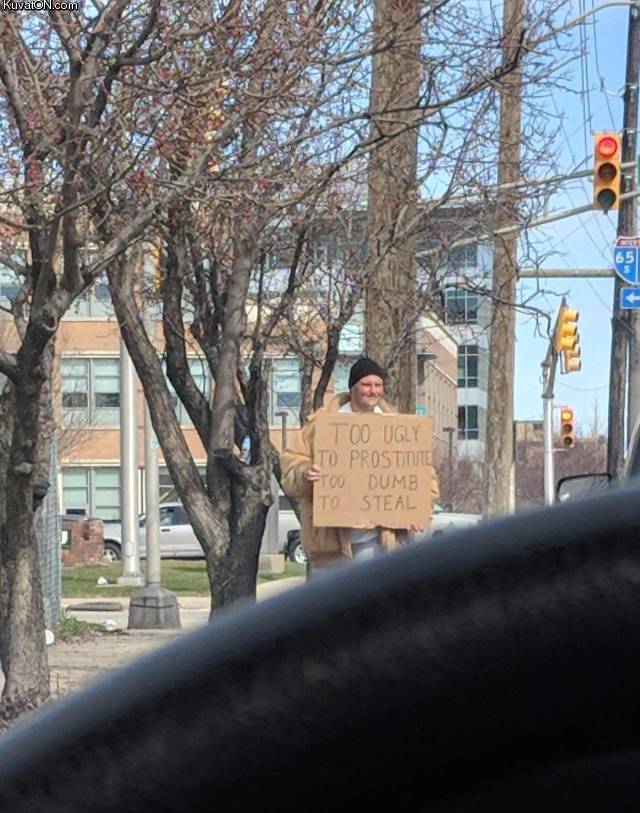 KuvatON.com
TOO UGLY
TO PROSTITUTE
TOO DUMB
TO STEAL
INTER
65
S